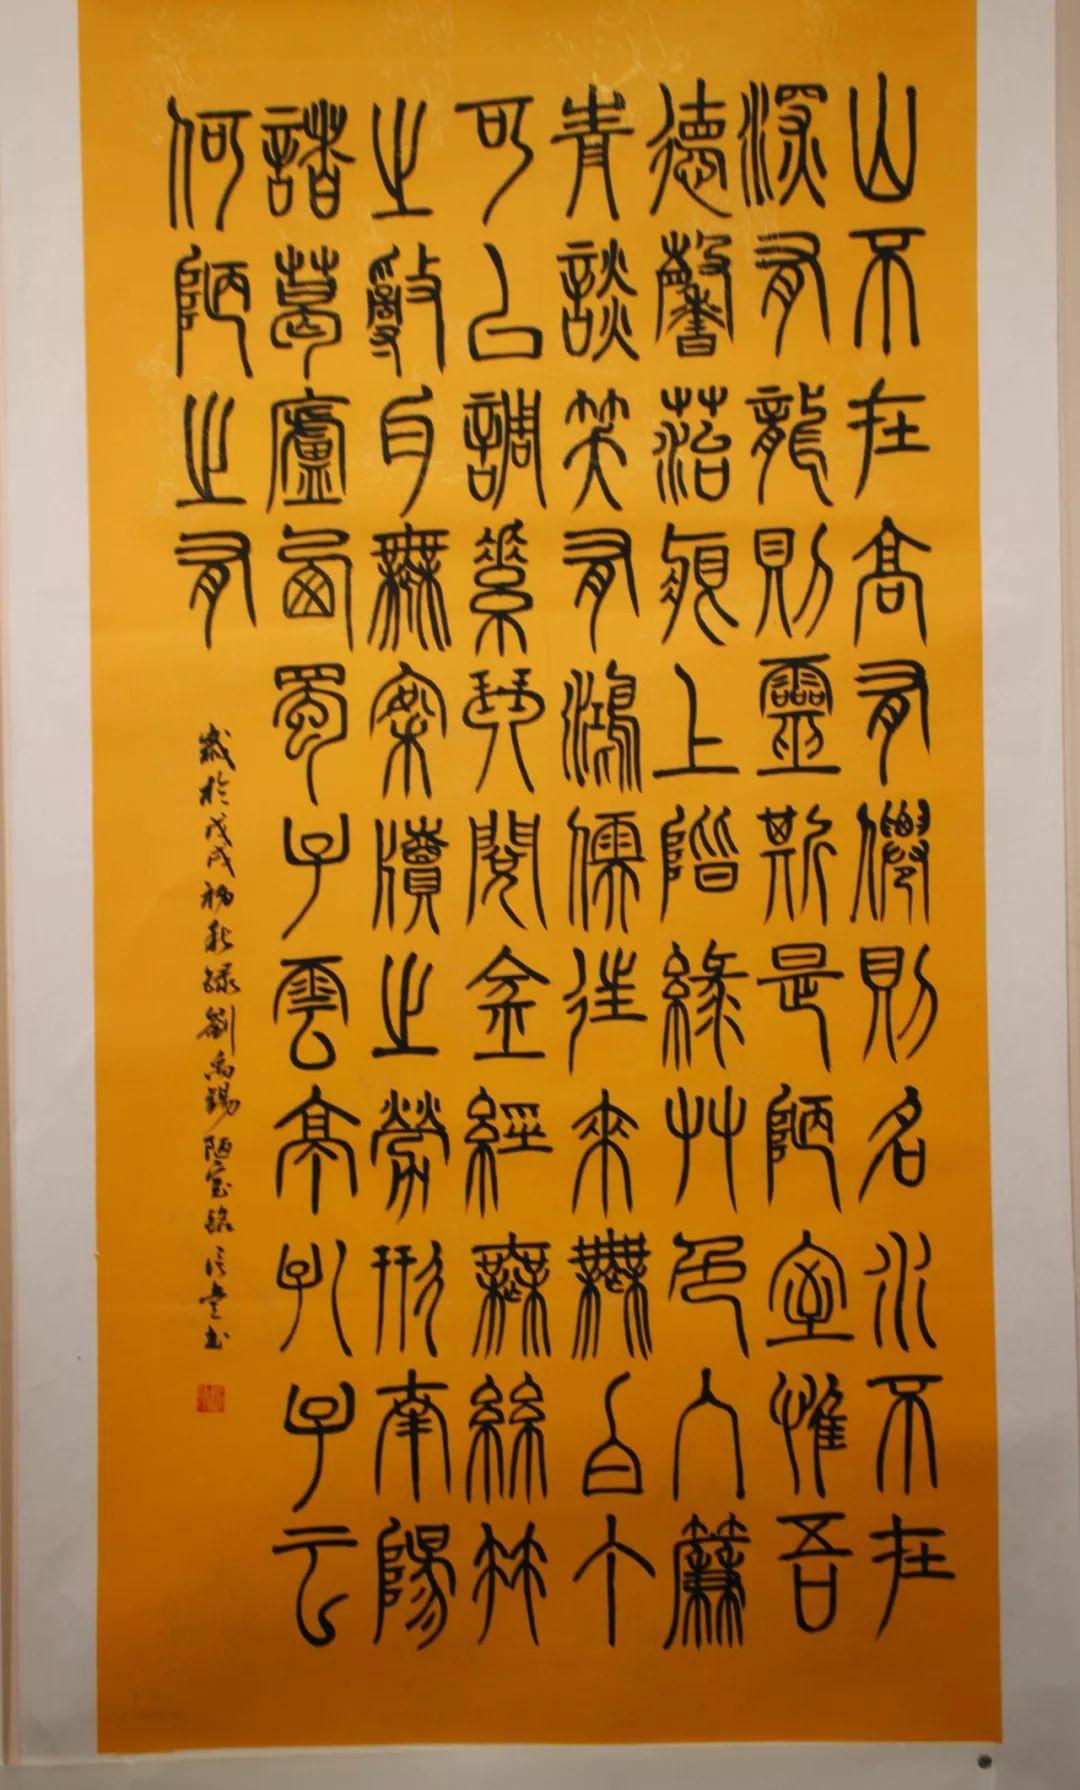 山不在高有僊則名水不在
深有龍則靈斯是陋室惟吾
德馨菭痕上階綠艸色入簾
青談笑有鴻儒往來無白丁
可以調素琴閱金經無絲竹
之亂耳無案牘之勞形南陽
諸葛廬西蜀子雲亭孔子云
何陋之有
歲於戊戌初秋錄劉禹錫陋室銘